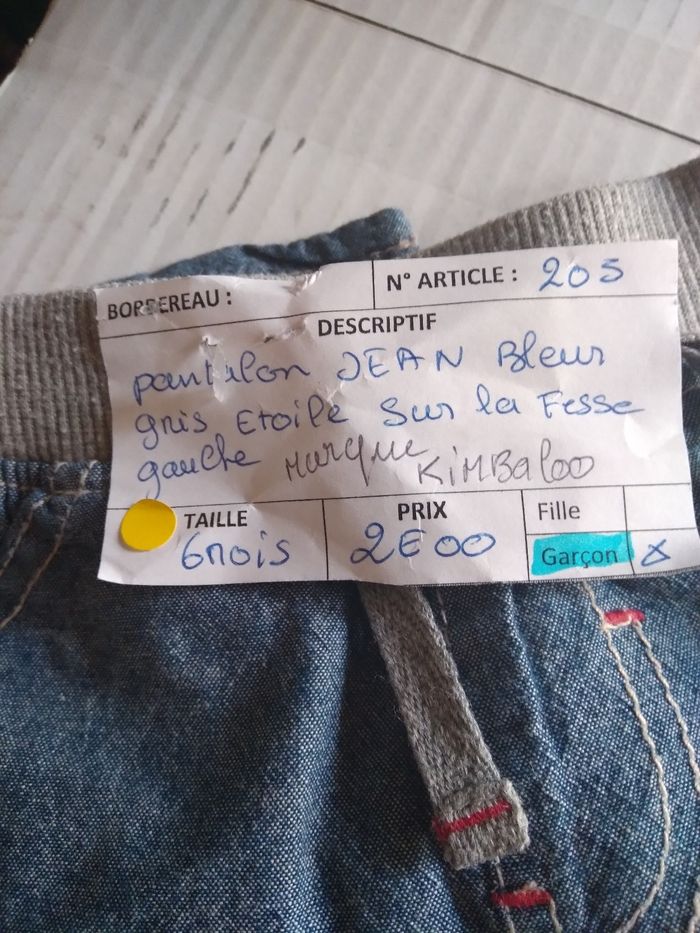 BORDEREAU :
N° ARTICLE : 205
DESCRIPTIF
pantalon JEAN Bleur
gris Etoile Sur la Fesse
gauche Marque KiMBaloo
TAILLE
6mois
PRIX
2E00
Fille
Garçon X